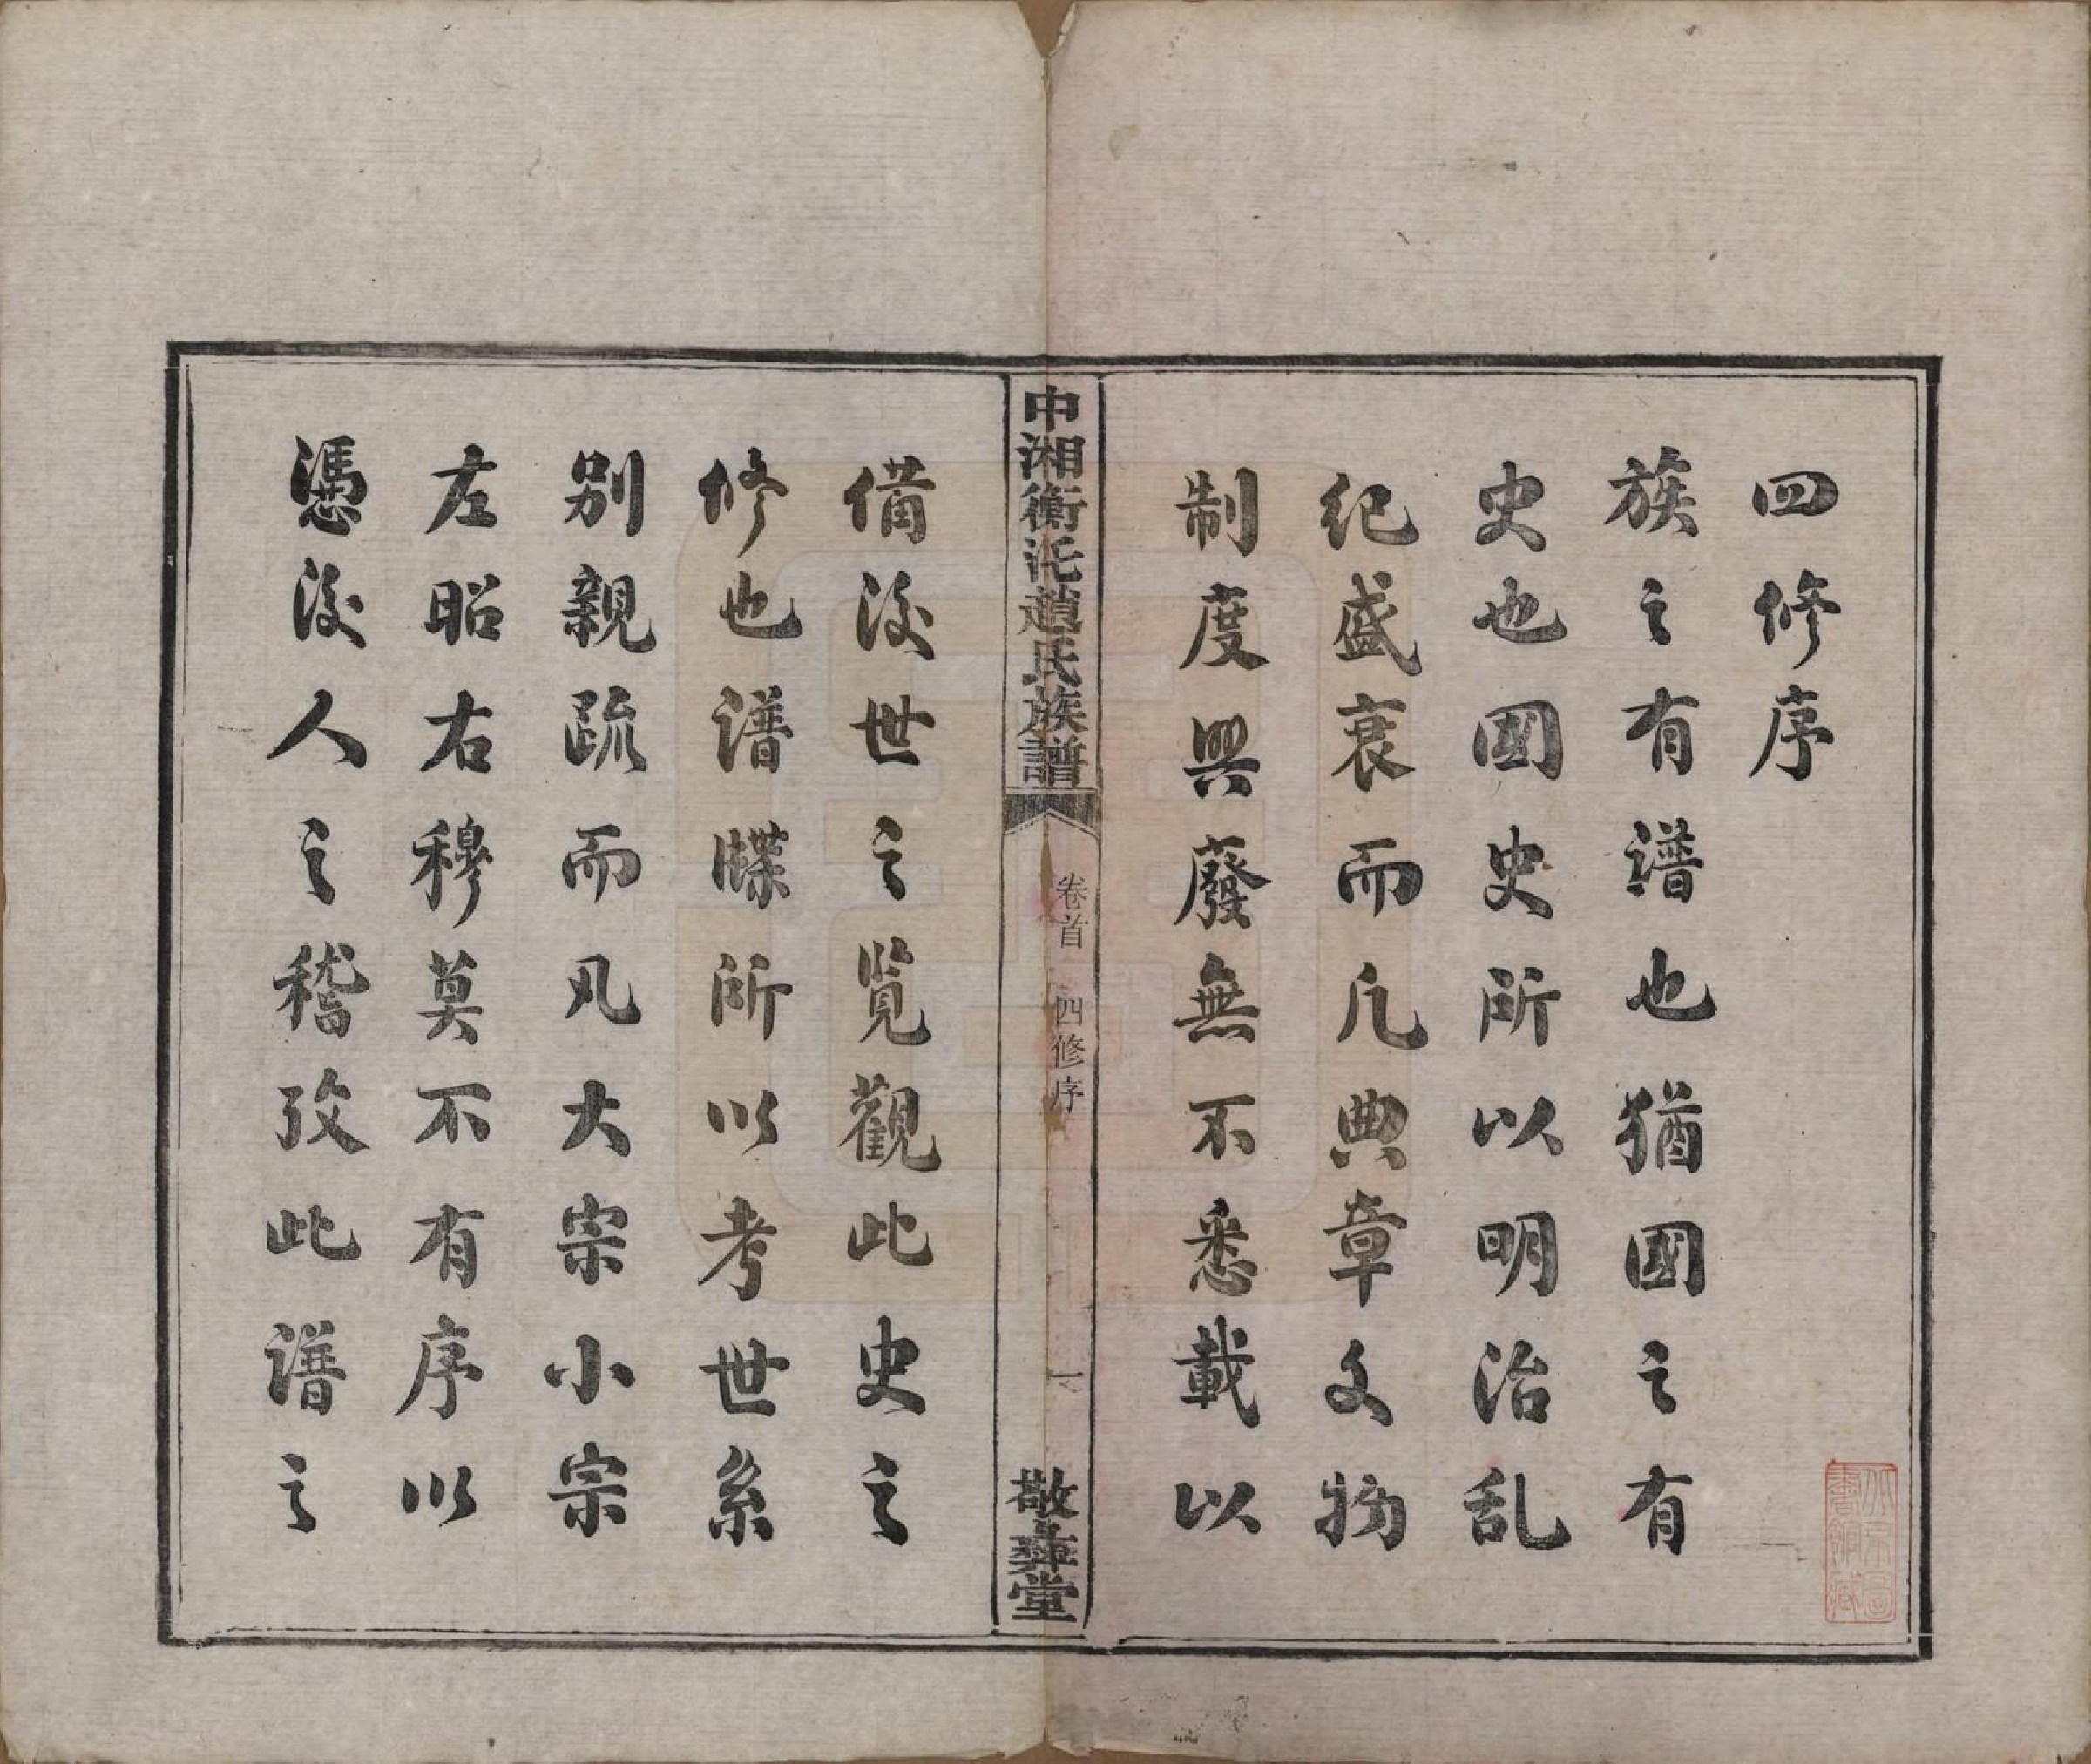 四修序
族之有譜也猶國之有
史也國史所以明治乱
紀盛衰而凡典章文物
制度興廢無不悉載以
中湘衡沱趙氏族譜
卷首 四修序
一
敬彝堂
備後世之覧觀此史之
修也譜牒所以考世系
別親疏而凡大宗小宗
左昭右穆莫不有序以
憑後人之稽攷此譜之